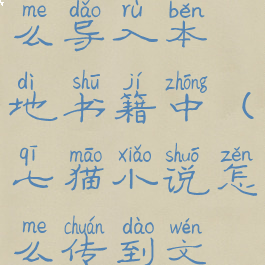 me dǎo rù běn
么导入本
dì shū jí zhōng
地书籍中（
qī māo xiǎo shuō zěn
七猫小说怎
me chuán dào wén
么传到文